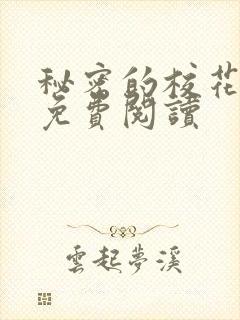 秘密的校花
免費閱讀
雲起夢溪